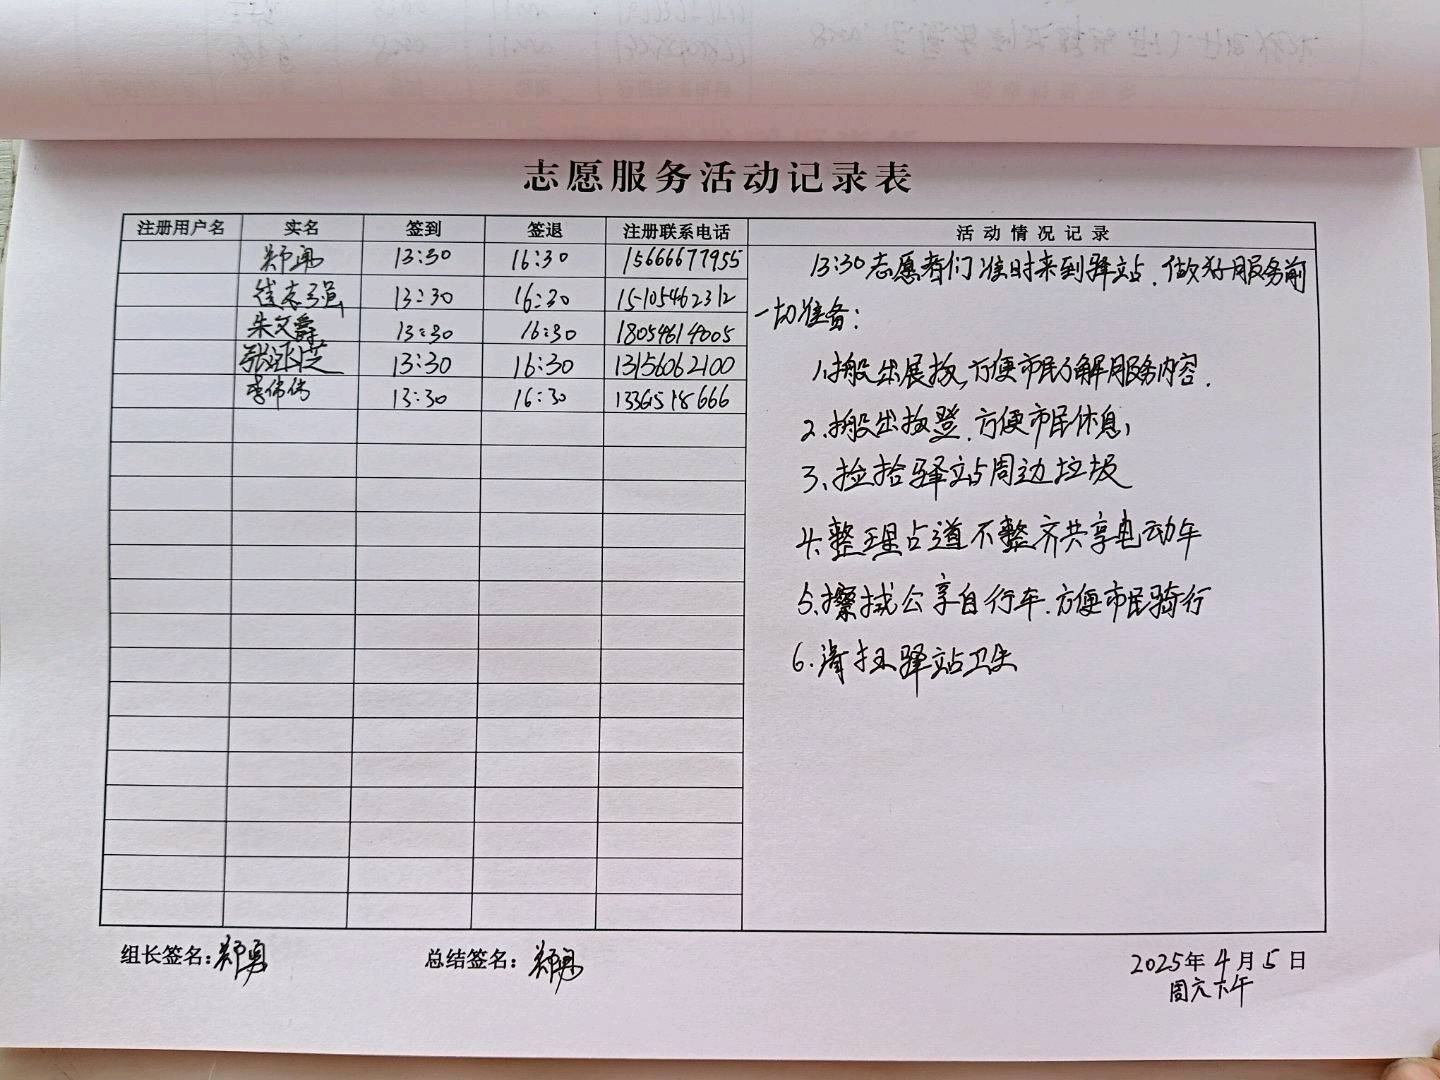 志愿服务活动记录表
注册用户名 实名 签到 签退 注册联系电话 活动情况记录
郑勇 13:30 16:30 15666677955
崔志强 13:30 16:30 15105462312
朱文爵 13:30 16:30 18054614005
张 芝 13:30 16:30 13156062100
李伟伟 13:30 16:30 13365178666
13:30志愿者们准时来到驿站.做好服务前
一切准备:
1.搬出展板,方便市民了解服务内容.
2.搬出板登.方便市民休息,
3、捡拾驿站周边垃圾
4.整理占道不整齐共享电动车
5.擦拭公享自行车.方便市民骑行
6.清扫驿站卫生
组长签名:郑勇 总结签名:郑勇 2025年4月5日
周六下午